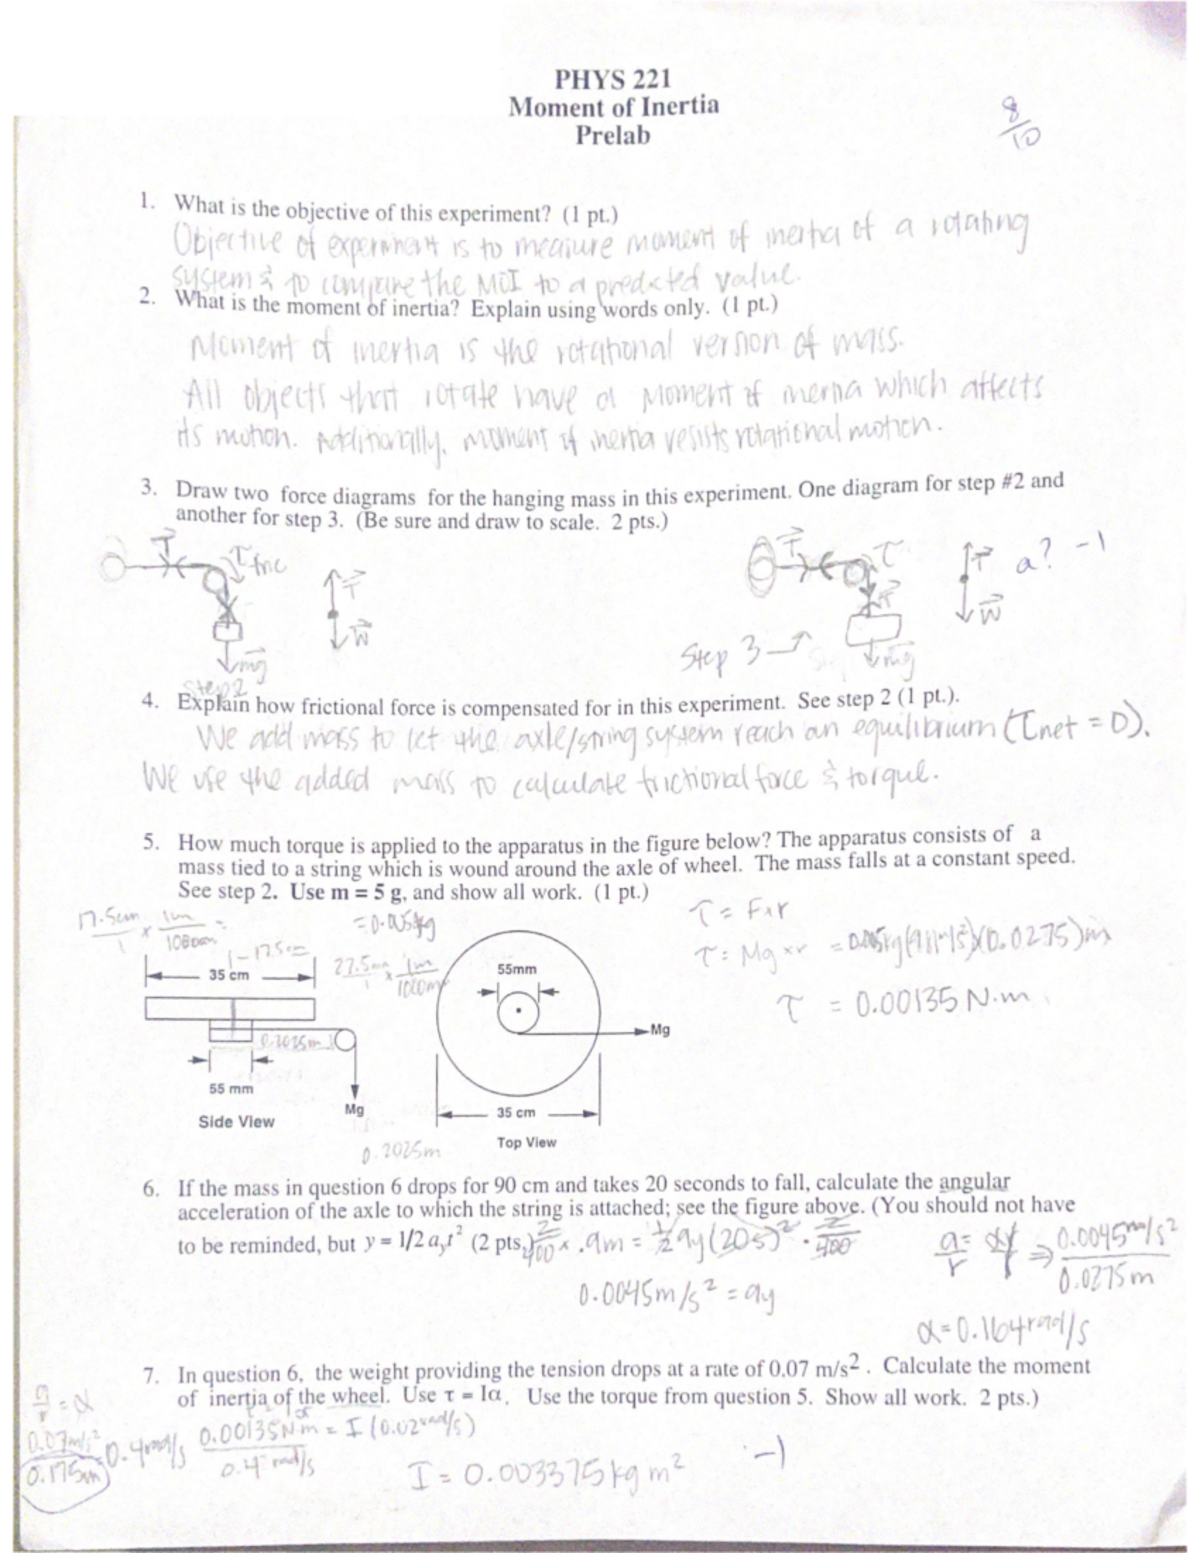 PHYS 221
Moment of Inertia
Prelab
8/10
1. What is the objective of this experiment? (1 pt.)
Objective of experiment is to measure moment of inertia of a rotating
system & to compare the MOI to a predicted value.
2. What is the moment of inertia? Explain using words only. (1 pt.)
Moment of inertia is the rotational version of mass.
All objects that rotate have a Moment of inertia which affects
its motion. Additionally, moment of inertia resists rotational motion.
3. Draw two force diagrams for the hanging mass in this experiment. One diagram for step #2 and
another for step 3. (Be sure and draw to scale. 2 pts.)
T τ fric T W mg
Step 2
T τ T mg T W a? -1
Step 3
4. Explain how frictional force is compensated for in this experiment. See step 2 (1 pt.).
We add mass to let the axle/string system reach an equilibrium (τnet = 0).
We use the added mass to calculate frictional force & torque.
5. How much torque is applied to the apparatus in the figure below? The apparatus consists of a
mass tied to a string which is wound around the axle of wheel. The mass falls at a constant speed.
See step 2. Use m = 5 g, and show all work. (1 pt.)
= 0.005kg
τ = F×r
τ = Mg × r = 0.005kg(9.81m/s²)(0.0275)m
τ = 0.00135 N·m
17.5cm
17.5cm
35 cm
27.5mm
55mm
Mg
0.2025m
55 mm
Mg
35 cm
Side View
Top View
0.2025m
6. If the mass in question 6 drops for 90 cm and takes 20 seconds to fall, calculate the angular
acceleration of the axle to which the string is attached; see the figure above. (You should not have
to be reminded, but y = 1/2 ayt² (2 pts.)
2/400 × .9m = 1/2 ay(20s)² · 2/400
0.0045m/s² = ay
a/r = αr/r ⇒ 0.0045m/s²/0.0275m
α = 0.164rad/s
7. In question 6, the weight providing the tension drops at a rate of 0.07 m/s². Calculate the moment
of inertia of the wheel. Use τ = Iα. Use the torque from question 5. Show all work. 2 pts.)
a/r = α
0.07m/s²/0.175m = 0.4rad/s
0.00135N·m = I (0.02rad/s)
0.4 rad/s
I = 0.003375kg m²
-1